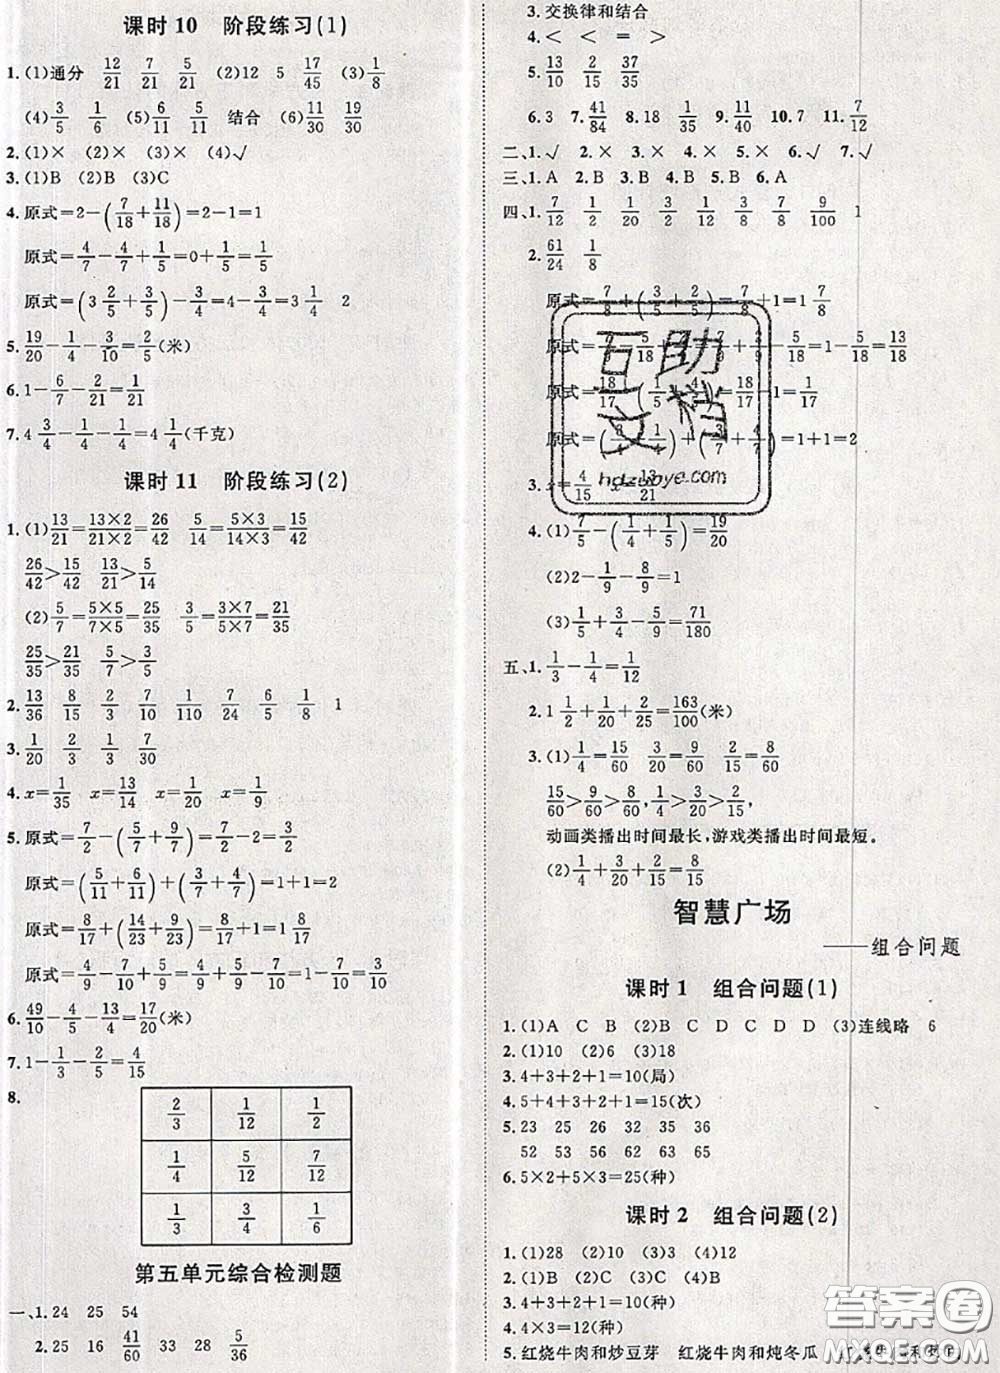 课时 10 阶段练习(1)
1.(1)通分 12/21 7/21 5/21 (2)12 5 17/45 (3)1/8
(4)3/5 1/6 (5)6/11 5/11 结合 (6)11/30 19/30
2.(1)× (2)× (3)× (4)√
3.(1)B (2)B (3)C
4.原式=2-(7/18+11/18)=2-1=1
原式=4/7-4/7+1/5=0+1/5=1/5
原式=(3 2/5+3/5)-3/4=4-3/4=3 1/4 2
5.19/20-1/4-3/10=2/5(米)
6.1-6/7-2/21=1/21
7.4 3/4-1/4-1/4=4 1/4(千克)
课时 11 阶段练习(2)
1.(1)13/21=13×2/21×2=26/42 5/14=5×3/14×3=15/42
26/42>15/42 13/21>5/14
(2)5/7=5×5/7×5=25/35 3/5=3×7/5×7=21/35
25/35>21/35 5/7>3/5
2.13/36 8/15 2/3 7/10 1/110 7/24 6/5 1/8 1
3.1/20 2/3 1/3 7/30
4.x=1/35 x=13/14 x=1/20 x=1/9
5.原式=7/2-(5/7+9/7)=7/2-2=3/2
原式=(5/11+6/11)+(3/7+4/7)=1+1=2
原式=8/17+(14/23+9/23)=8/17+1=1 8/17
原式=4/9-7/10+5/9=4/9+5/9-7/10=1-7/10=3/10
6.49/10-4/5-13/4=17/20(米)
7.1-1/3-2/5=4/15
8.
2/3 1/12 1/2
1/4 5/12 7/12
1/3 3/4 1/6
第五单元综合检测题
一、1.24 25 54
2.25 16 41/60 33 28 5/36
3.交换律和结合
4.< < = >
5.13/10 2/15 37/35
6.3 7.41/84 8.18 1/35 9.11/40 10.7 11.7/12
二、1.√ 2.× 3.× 4.× 5.× 6.√ 7.√
三、1.A 2.B 3.B 4.B 5.B 6.A
四、1.7/12 1/2 1/20 1/2 3/8 7/8 9/100 1
2.61/24 1/8
原式=7/8+(3/5+2/5)=7/8+1=1 7/8
原式=7/9-5/18+2/9=7/9+2/9-5/18=1-5/18=13/18
原式=18/17-(1/5+4/5)=18/17-1=1/17
原式=(3/4+1/4)+(3/7+4/7)=1+1=2
3.x=4/15 x=13/21
4.(1)7/5-(1/4+1/5)=19/20
(2)2-1/9-8/9=1
(3)1/5+3/4-5/9=71/180
五、1.1/3-1/4=1/12
2.1 1/2+1/20+2/25=163/100(米)
3.(1)1/4=15/60 3/20=9/60 2/15=8/60
15/60>9/60>8/60,1/4>3/20>2/15,
动画类播出时间最长,游戏类播出时间最短。
(2)1/4+3/20+2/15=8/15
智慧广场
——组合问题
课时 1 组合问题(1)
1.(1)A C B (2)B C D C D D (3)连线略 6
2.(1)10 (2)6 (3)18
3.4+3+2+1=10(局)
4.5+4+3+2+1=15(次)
5.23 25 26 32 35 36
52 53 56 62 63 65
6.5×2+5×3=25(种)
课时 2 组合问题(2)
1.(1)28 (2)10 (3)4 (4)12
2.(1)B (2)C (3)C (4)B
3.4+3+2+1=10(种)
4.4×3=12(种)
5.红烧牛肉和炒豆芽 红烧牛肉和炖冬瓜
互助文档
hdzuoye.com
答案圈